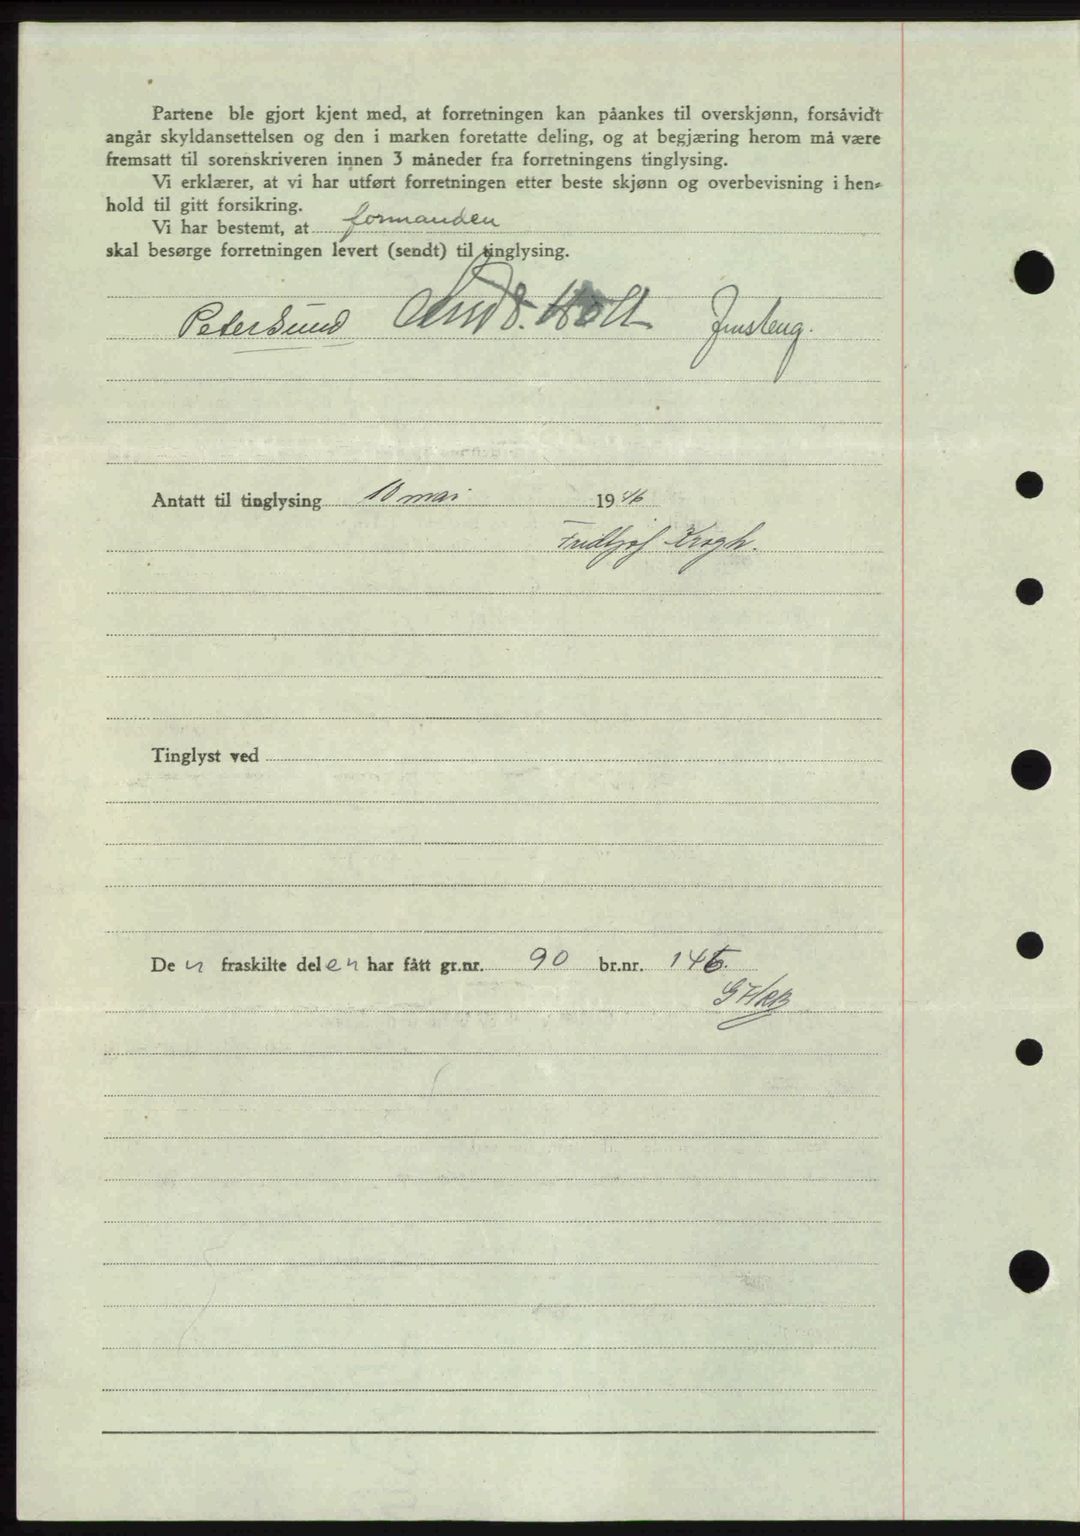 Partene ble gjort kjent med, at forretningen kan påankes til overskjønn, forsåvidt
angår skyldansettelsen og den i marken foretatte deling, og at begjæring herom må være
fremsatt til sorenskriveren innen 3 måneder fra forretningens tinglysing.
Vi erklærer, at vi har utført forretningen etter beste skjønn og overbevisning i hen-
hold til gitt forsikring.
Vi har bestemt, at formanden
skal besørge forretningen levert (sendt) til tinglysing.
Peter Sund Holt
Antatt til tinglysing 10 mai 1946
Fridtjof Krogh.
Tinglyst ved
Den fraskilte delen har fått gr.nr. 90 br.nr.